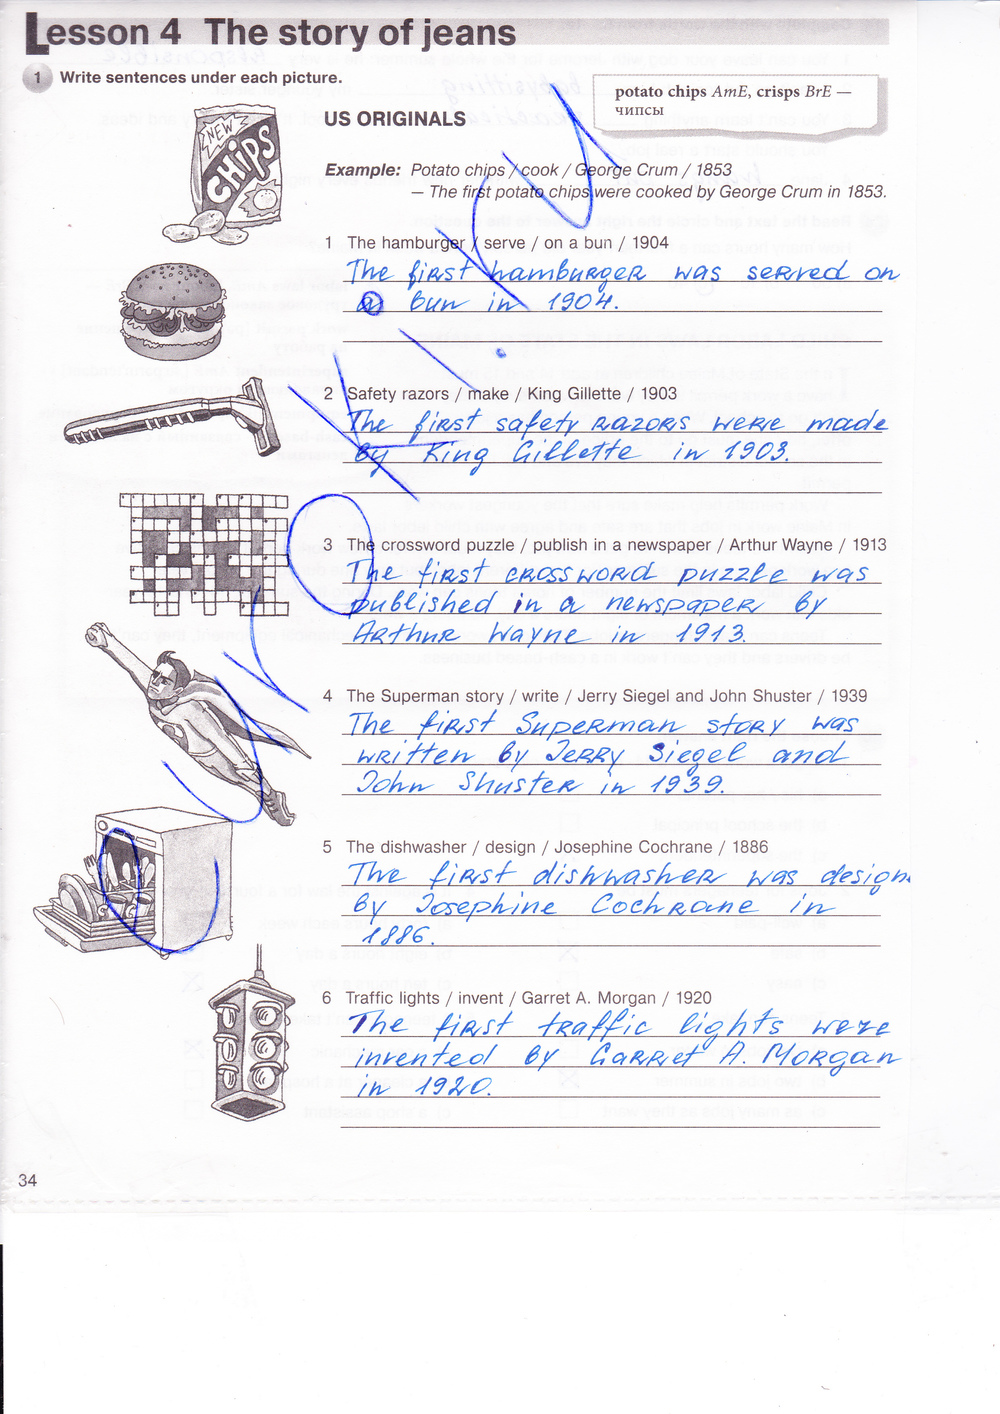 Lesson 4 The story of jeans
1 Write sentences under each picture.
potato chips AmE, crisps BrE —
чипсы
NEW
CHIPS
US ORIGINALS
Example: Potato chips / cook / George Crum / 1853
— The first potato chips were cooked by George Crum in 1853.
1 The hamburger / serve / on a bun / 1904
The first hamburger was served on
a bun in 1904.
2 Safety razors / make / King Gillette / 1903
The first safety razors were made
by King Gillette in 1903.
3 The crossword puzzle / publish in a newspaper / Arthur Wayne / 1913
The first crossword puzzle was
published in a newspaper by
Arthur Wayne in 1913.
4 The Superman story / write / Jerry Siegel and John Shuster / 1939
The first Superman story was
written by Jerry Siegel and
John Shuster in 1939.
5 The dishwasher / design / Josephine Cochrane / 1886
The first dishwasher was design
by Josephine Cochrane in
1886.
6 Traffic lights / invent / Garret A. Morgan / 1920
The first traffic lights were
invented by Garret A. Morgan
in 1920.
34